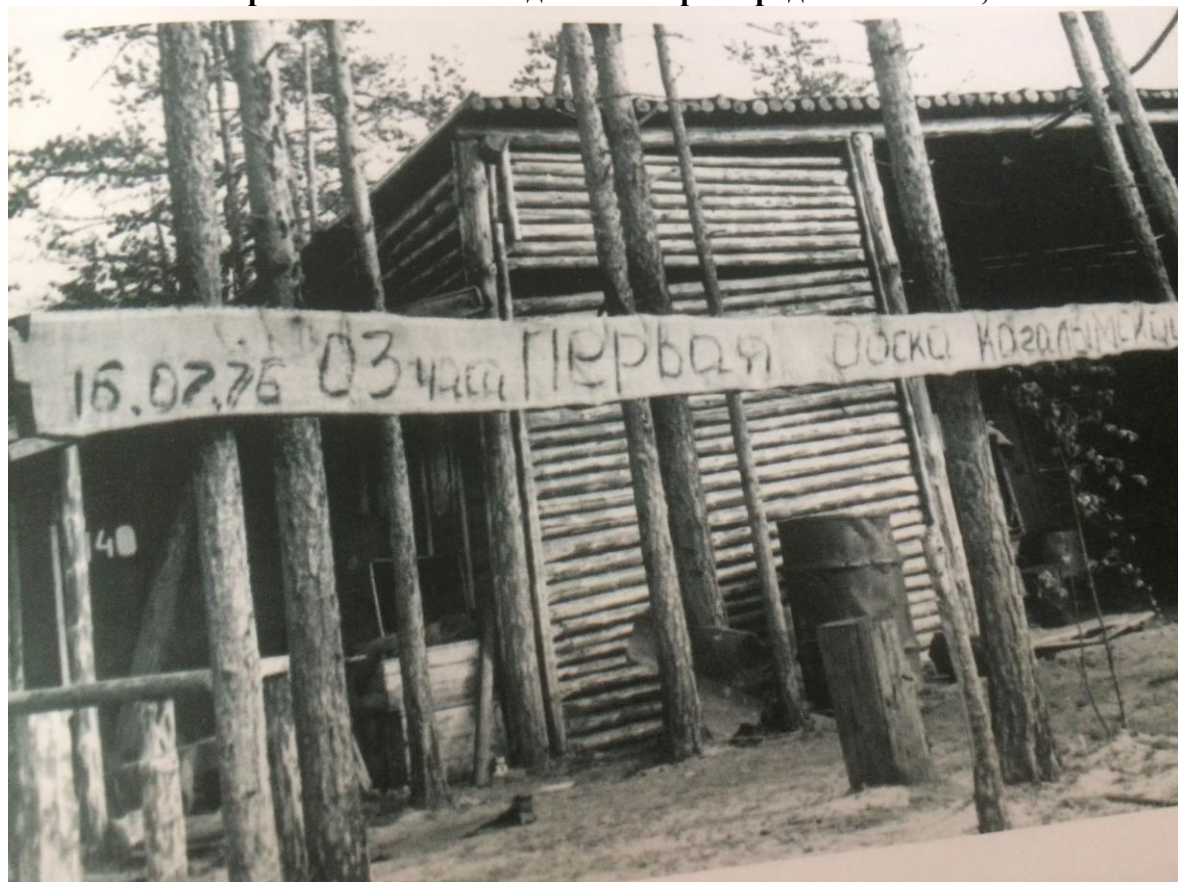 16.07.76 03 часа Первая доска Когалымская
40